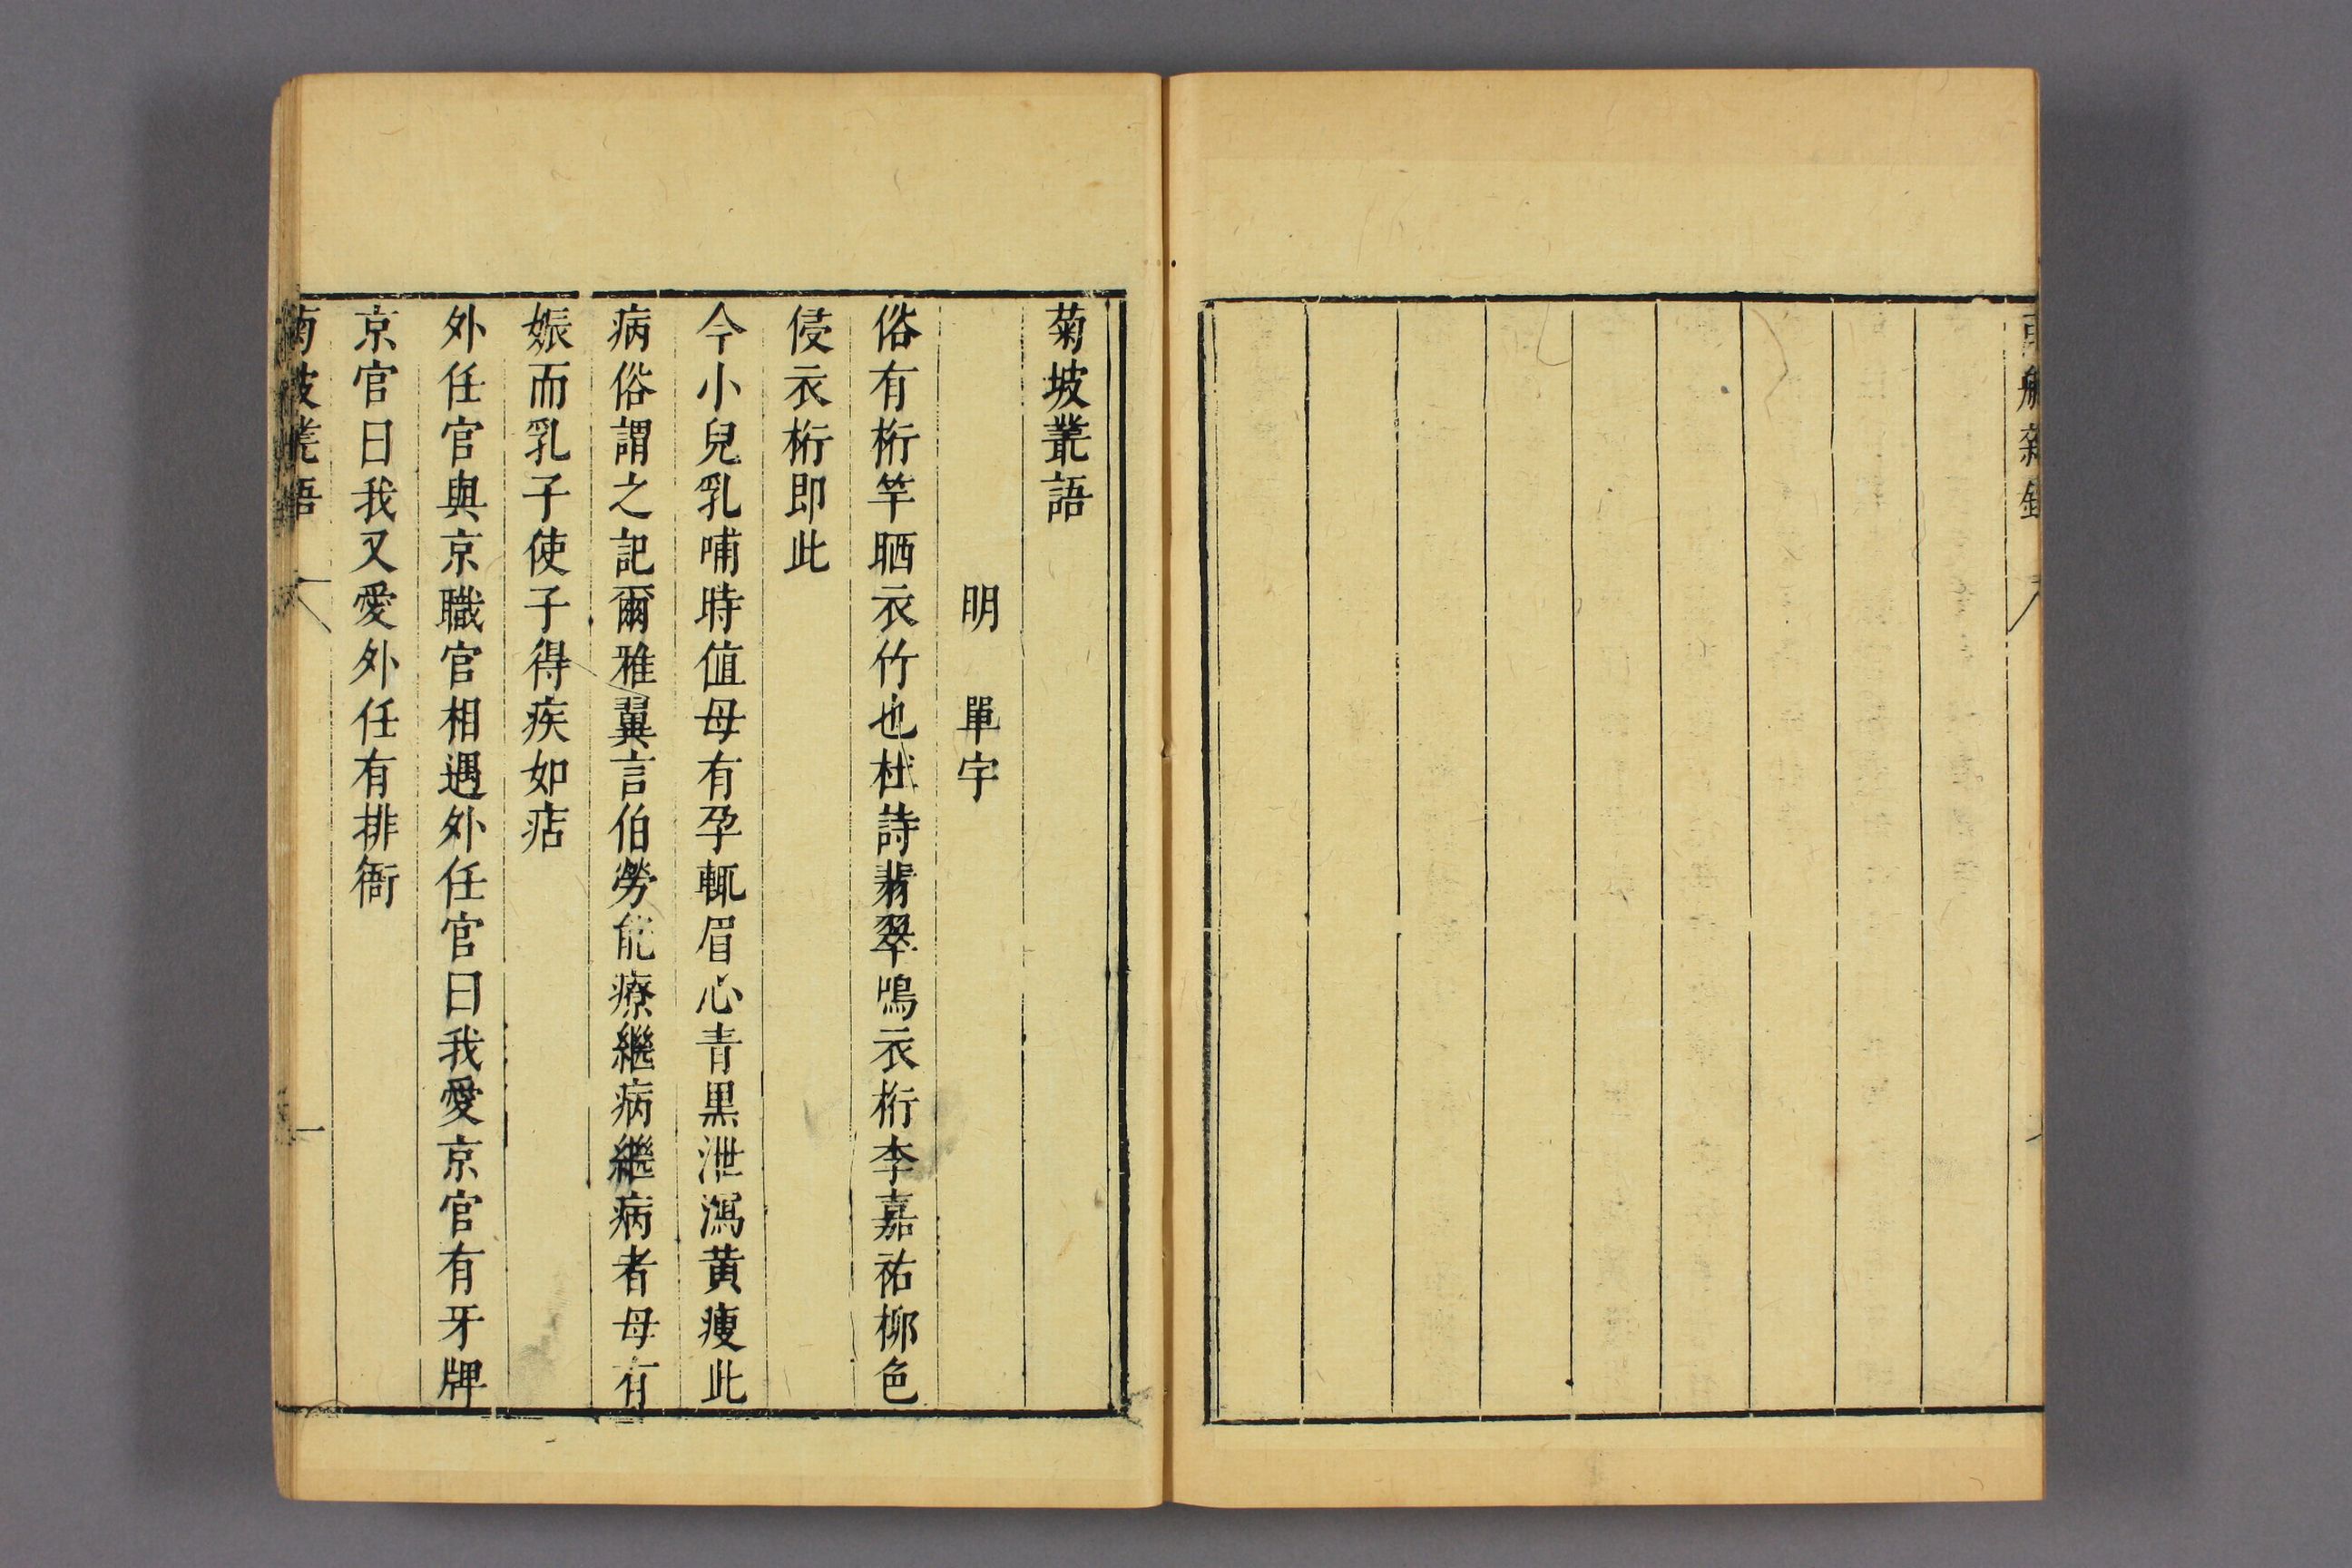 雜
菊坡叢語
明 單宇
俗有桁竿晒衣竹也杜詩翡翠鳴衣桁李嘉祐柳色
侵衣桁即此
今小兒乳哺時值母有孕輒眉心青黒泄瀉黄痩此
病俗謂之記爾雅翼言伯勞能療繼病繼病者母有
娠而乳子使子得疾如痁
外任官與京職官相遇外任官曰我愛京官有牙牌
京官曰我又愛外任有排衙
坡叢語
一